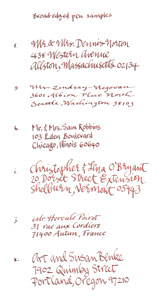 Broad-edged pen samples
f. Mr. & Mrs. Dennis Norton
438 Western Avenue
Allston, Massachusetts 02134
g. Mr. Lindsay
3601 Albion Place North
Seattle, Washington 98103
h. Mr. & Mrs. Sam Robbins
103 Eden Boulevard
Chicago, Illinois 60640
i. Christopher & Lina O'Bryant
20 Dorset Street Extension
Shelburn, Vermont 05943
j. Hercule Poirot
31 rue aux Cordiers
71400 Autun, France
k. Art and Susan Benke
7902 Quimby Street
Portland, Oregon 97210